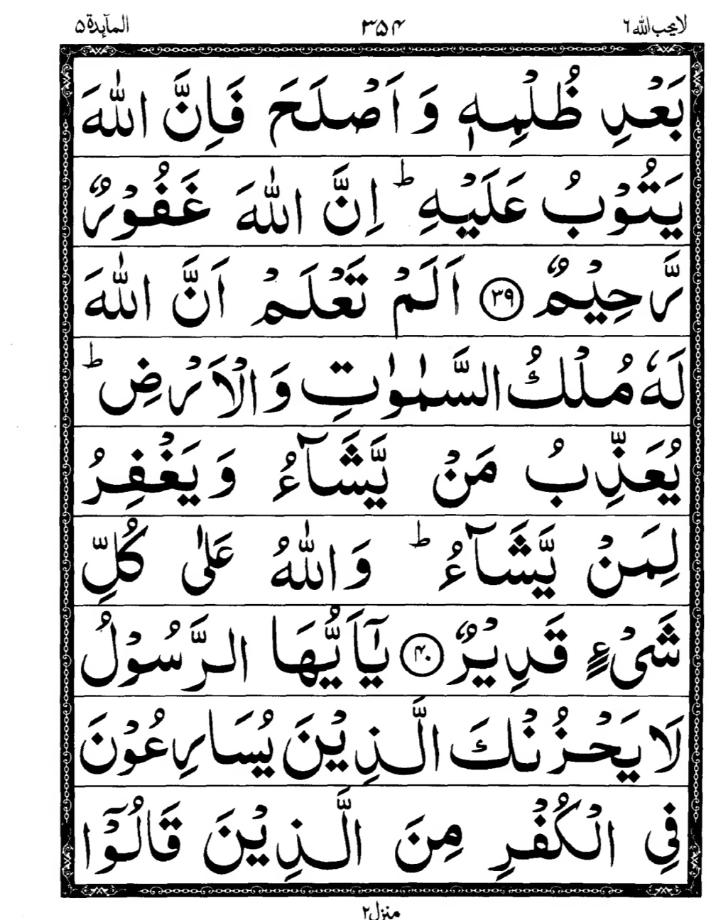 المآىدة ۵ ۳۵۴ لا يحب الله ٦
بَعْدِ ظُلْمِهٖ وَ اَصْلَحَ فَاِنَّ اللّٰهَ
يَتُوْبُ عَلَيْهِ ؕ اِنَّ اللّٰهَ غَفُوْرٌ
رَّحِيْمٌ ﴿۳۹﴾ اَلَمْ تَعْلَمْ اَنَّ اللّٰهَ
لَهٗ مُلْكُ السَّمٰوٰتِ وَالْاَرْضِ ؕ
يُعَذِّبُ مَنْ يَّشَآءُ وَيَغْفِرُ
لِمَنْ يَّشَآءُ ؕ وَاللّٰهُ عَلٰى كُلِّ
شَىْءٍ قَدِيْرٌ ﴿۴۰﴾ يٰۤاَيُّهَا الرَّسُوْلُ
لَا يَحْزُنْكَ الَّذِيْنَ يُسَارِعُوْنَ
فِى الْكُفْرِ مِنَ الَّذِيْنَ قَالُوْۤا
منزل ۲